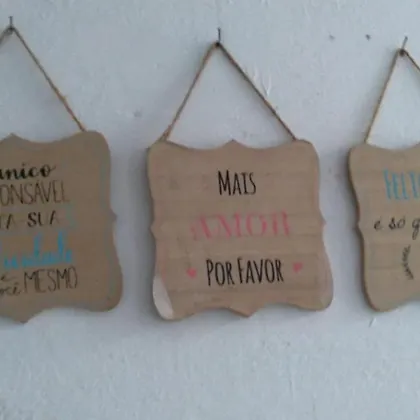 único
PONSÁVEL
SUA
MESMO
MAIS
AMOR
POR FAVOR
é só q